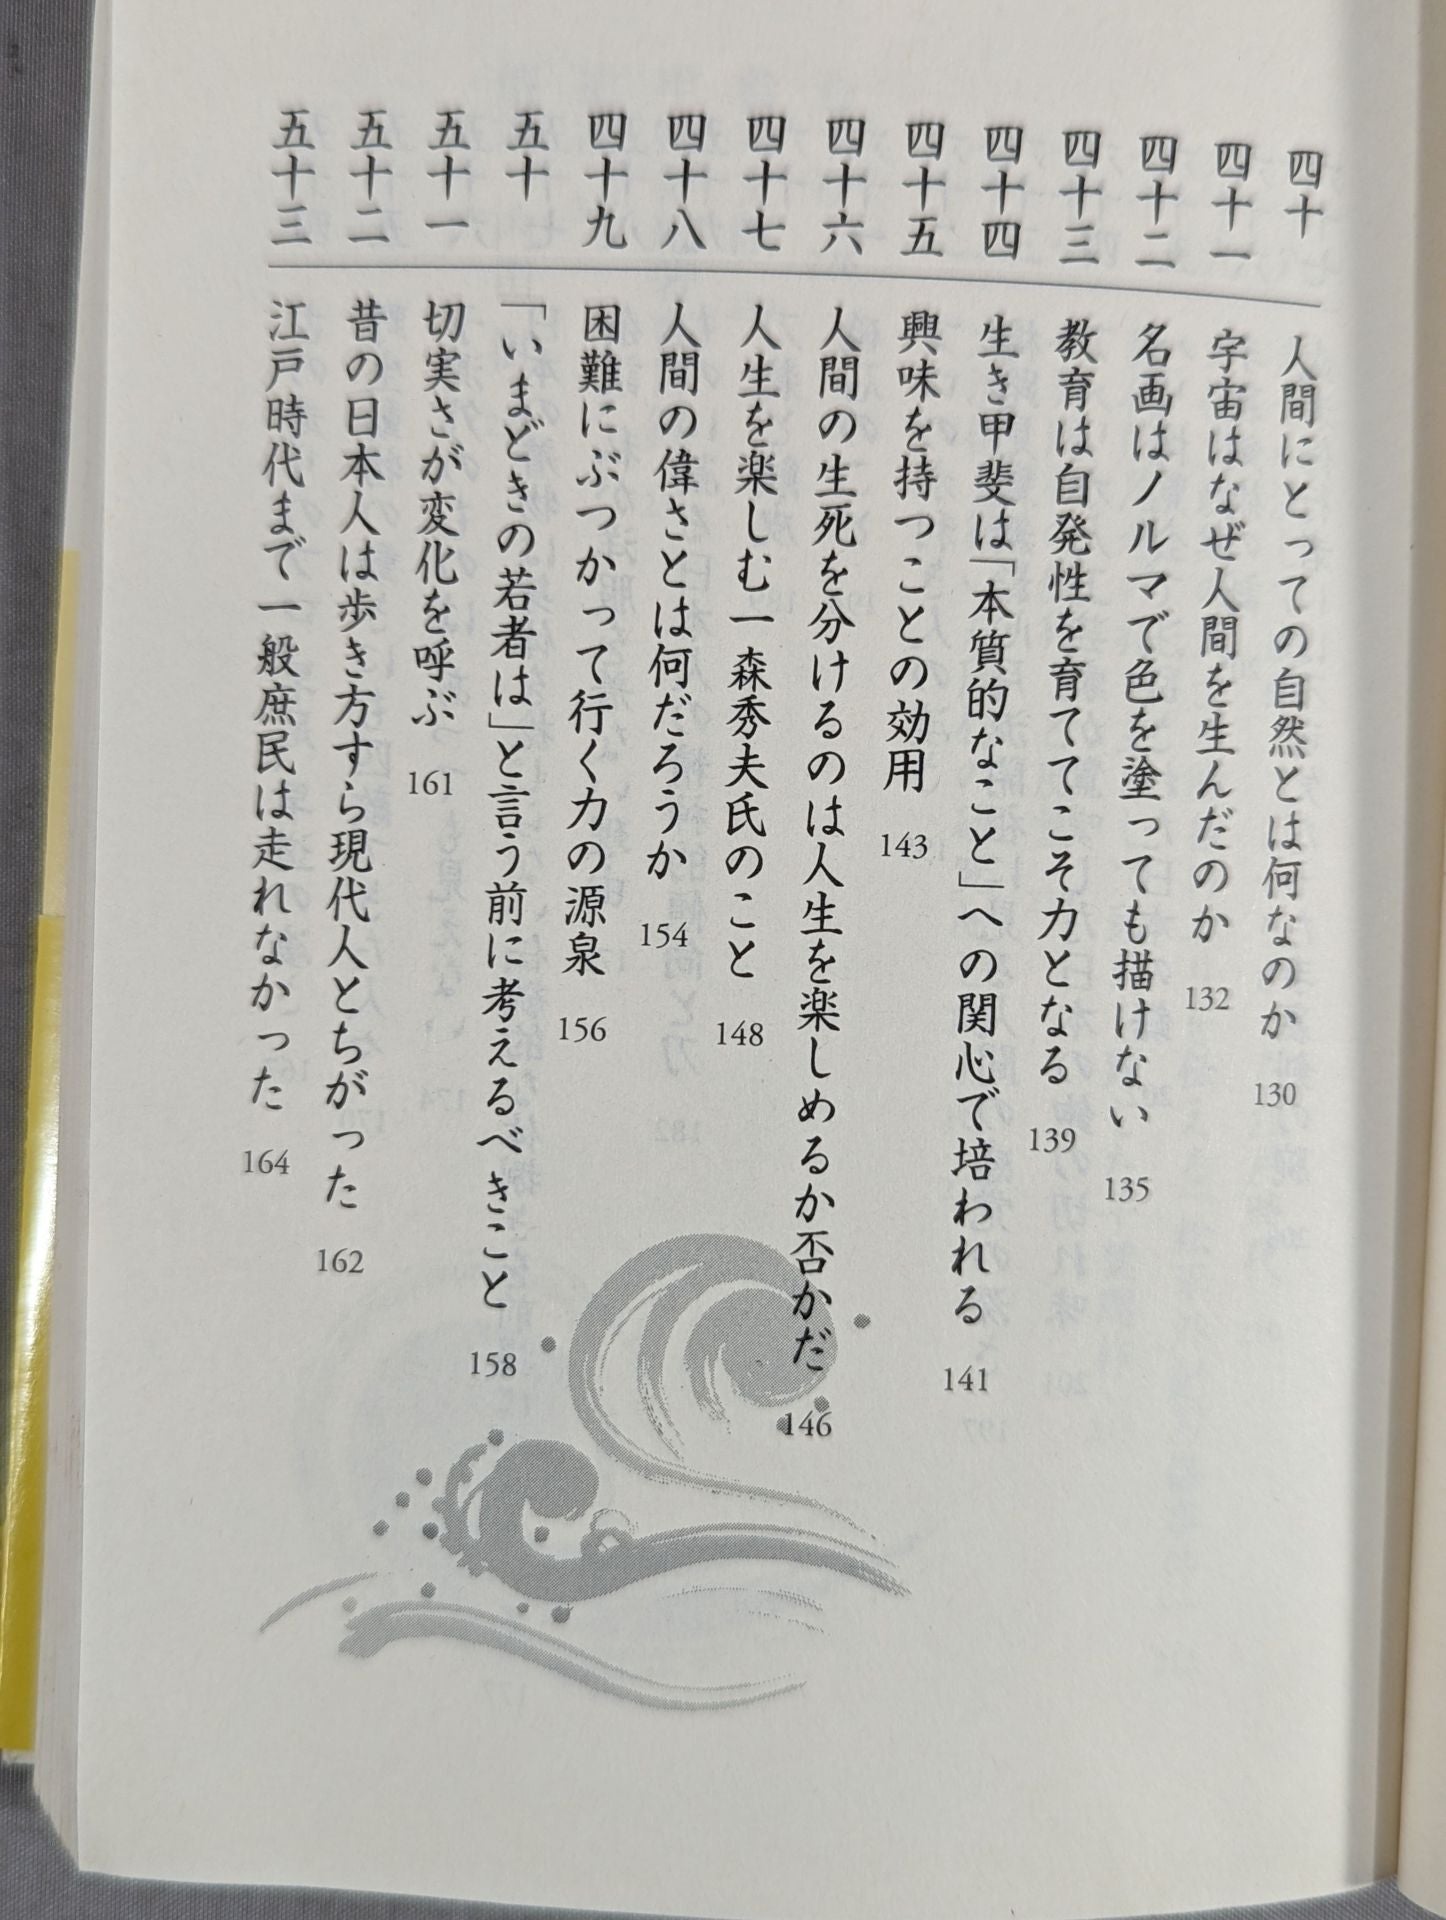 四十 人間にとっての自然とは何なのか 130
四十一 宇宙はなぜ人間を生んだのか 132
四十二 名画はノルマで色を塗っても描けない 135
四十三 教育は自発性を育ててこそ力となる 139
四十四 生き甲斐は「本質的なこと」への関心で培われる 141
四十五 興味を持つことの効用 143
四十六 人間の生死を分けるのは人生を楽しめるか否かだ 146
四十七 人生を楽しむ一森秀夫氏のこと 148
四十八 人間の偉さとは何だろうか 154
四十九 困難にぶつかって行く力の源泉 156
五十 「いまどきの若者は」と言う前に考えるべきこと 158
五十一 切実さが変化を呼ぶ 161
五十二 昔の日本人は歩き方すら現代人とちがった 162
五十三 江戸時代まで一般庶民は走れなかった 164